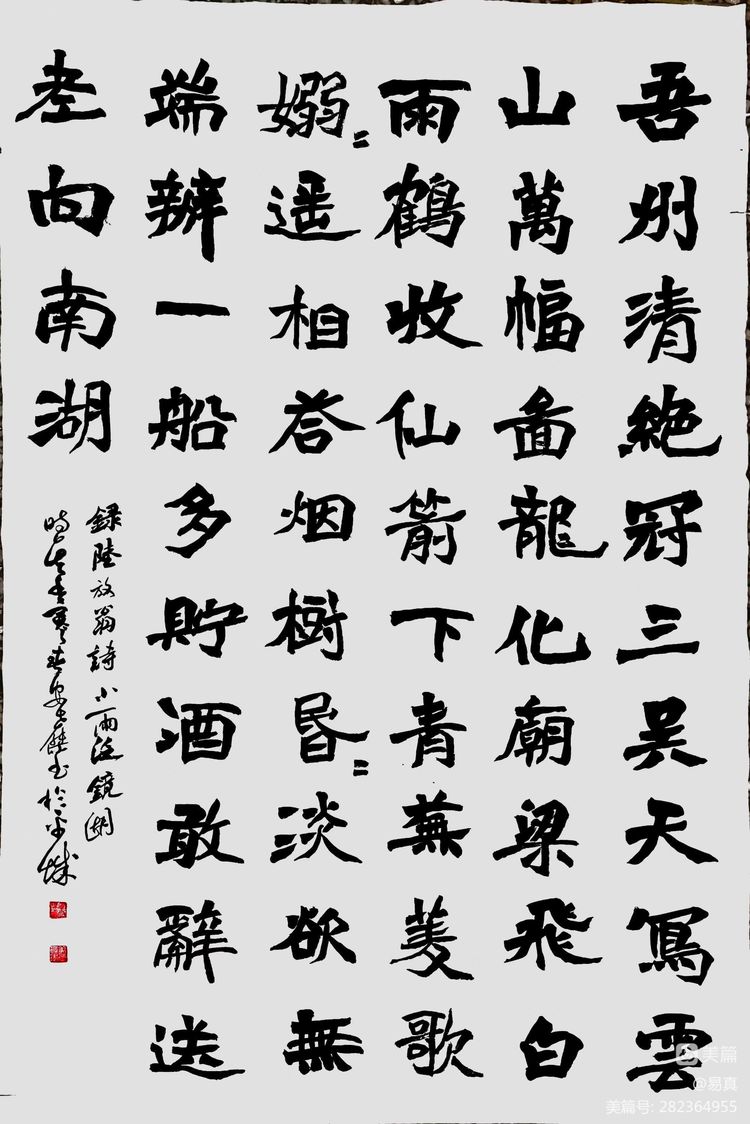 吾州清絶冠三吴天寫雲
山萬幅啚龍化廟梁飛白
雨鶴收仙箭下青蕪菱歌
嫋〻遥相荅烟樹昏〻淡欲無
端辦一船多貯酒敢辭送
老向南湖
録陸放翁詩小雨泛鏡湖
時
美篇
@易真
美篇号: 282364955